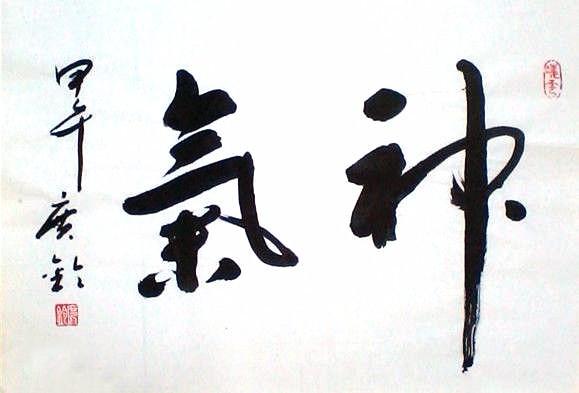 神氣
甲午
廣鈴